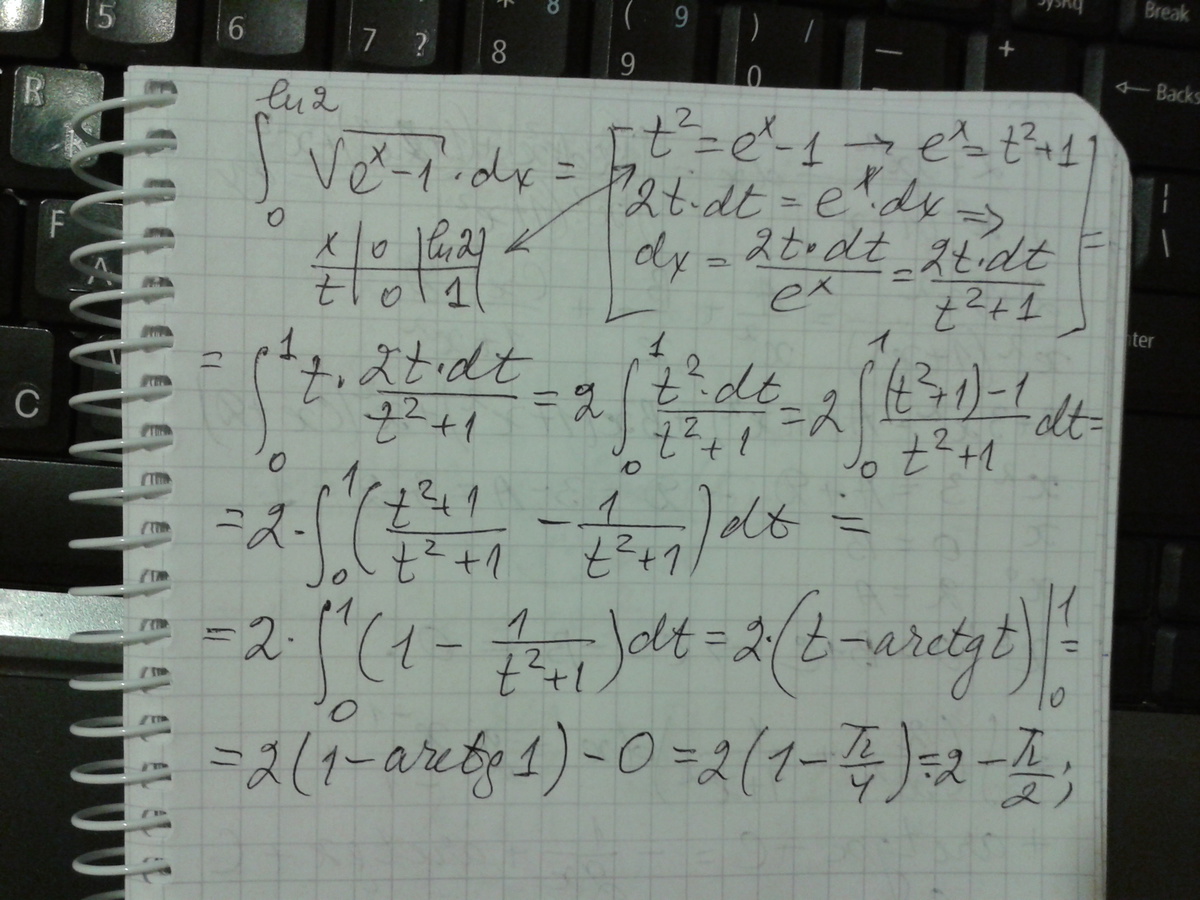 5 6 7 ? * 8 8 ( 9 9 ) / 0 — + SysRq Break
R ← Backs
ln2
∫₀ √(eˣ-1)·dx = [ t² = eˣ-1 → eˣ = t²+1
2t·dt = eˣ·dx ⇒
F x | 0 | ln2 | dx = 2t·dt/eˣ = 2t·dt/(t²+1) ] = | \
t | 0 | 1 |
= ∫₀¹ t·2t·dt/(t²+1) = 2∫₀¹ t²·dt/(t²+1) = 2∫₀¹ ((t²+1)-1)/(t²+1) dt =
C
= 2·∫₀¹ ((t²+1)/(t²+1) - 1/(t²+1)) dt =
= 2·∫₀¹ (1 - 1/(t²+1)) dt = 2·(t - arctgt)|₀¹ =
= 2(1 - arctg1) - 0 = 2(1 - π/4) = 2 - π/2;